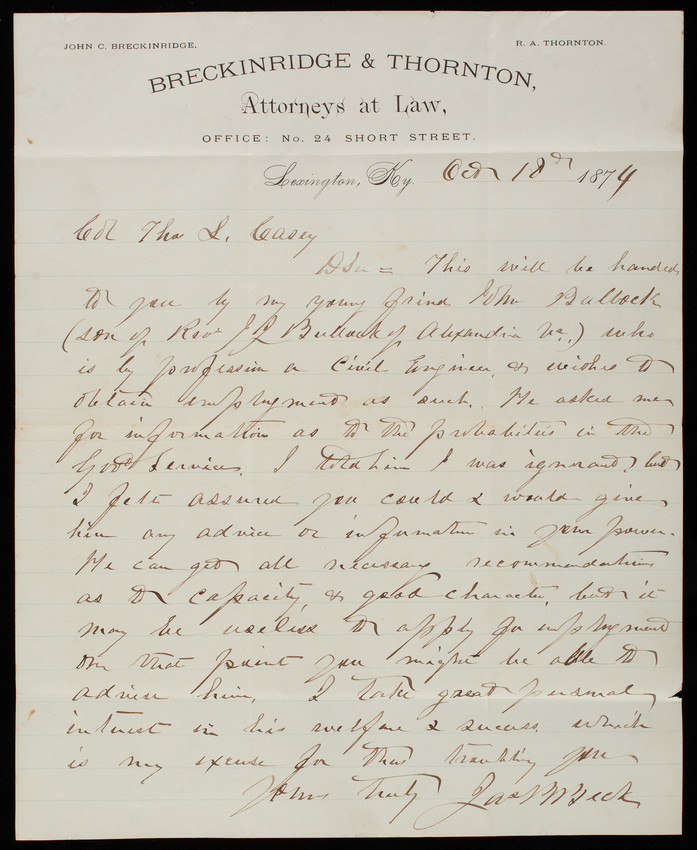 JOHN C. BRECKINRIDGE.
R. A. THORNTON.
BRECKINRIDGE & THORNTON,
Attorneys at Law,
OFFICE: No. 24 SHORT STREET.
Lexington, Ky. Oct 18th 1874
Col Tho L. Casey
D Sir = This will be handed
to you by my young friend John Bullock
(son of Revd J J Bullock of Alexandria Va.) who
is by profession a Civil Engineer, & wishes to
obtain employment as such. He asked me
for information as to the probabilities in the
Govt Service. I told him I was ignorant, but
I felt assured you could & would give
him any advice or information in your power.
He can get all necessary recommendations
as to capacity, & good character, but it
may be useless to apply for employment
on that point you might be able to
advise him. I take great personal
interest in his welfare & success. which
is my excuse for thus troubling you
Yours truly Jas B Beck